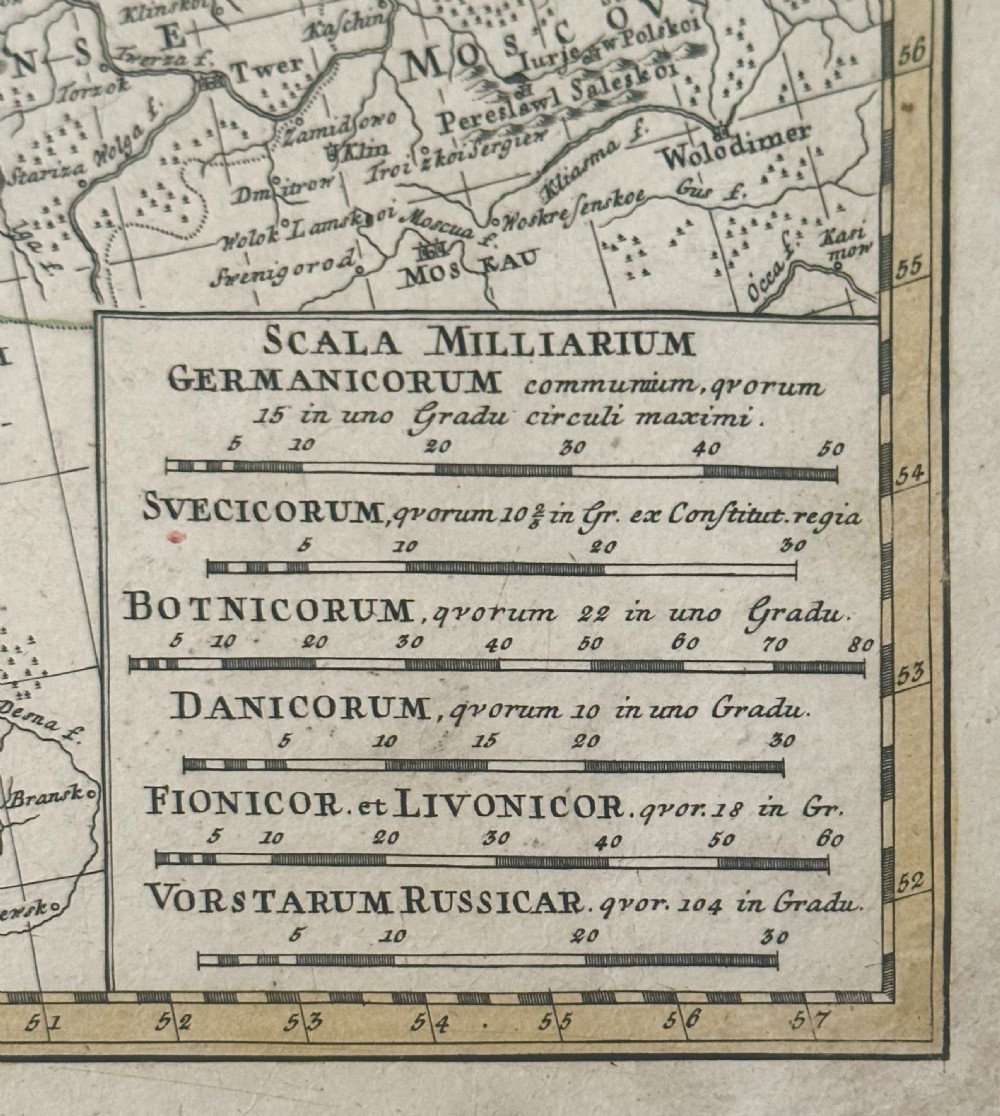 Klinskoi
Kaſchin
N S E
MOSCOV
Twerza f.
Twer
Jurjew Polskoi
56
Torzok
Pereslawl Saleskoi
Wolga f.
Zamidſowo
Klin
Troitzkoi Sergiew
Kliasma f.
Wolodimer
Stariza
Dmitrow
Gus f.
Wolok Lamskoi
Moscua f.
Woskreſenskoe
Swenigorod
MOSKAU
Occa f.
Kasi
mow
55
SCALA MILLIARIUM
GERMANICORUM communium, qvorum
15 in uno Gradu circuli maximi.
5 10 20 30 40 50
54
SVECICORUM, qvorum 10 2/5 in Gr. ex Conſtitut. regia
5 10 20 30
BOTNICORUM, qvorum 22 in uno Gradu.
5 10 20 30 40 50 60 70 80
53
DANICORUM, qvorum 10 in uno Gradu.
Desna f.
5 10 15 20 30
Bransk
FIONICOR. et LIVONICOR. qvor. 18 in Gr.
5 10 20 30 40 50 60
52
VORSTARUM RUSSICAR. qvor. 104 in Gradu.
ewsk
5 10 20 30
51 52 53 54 55 56 57